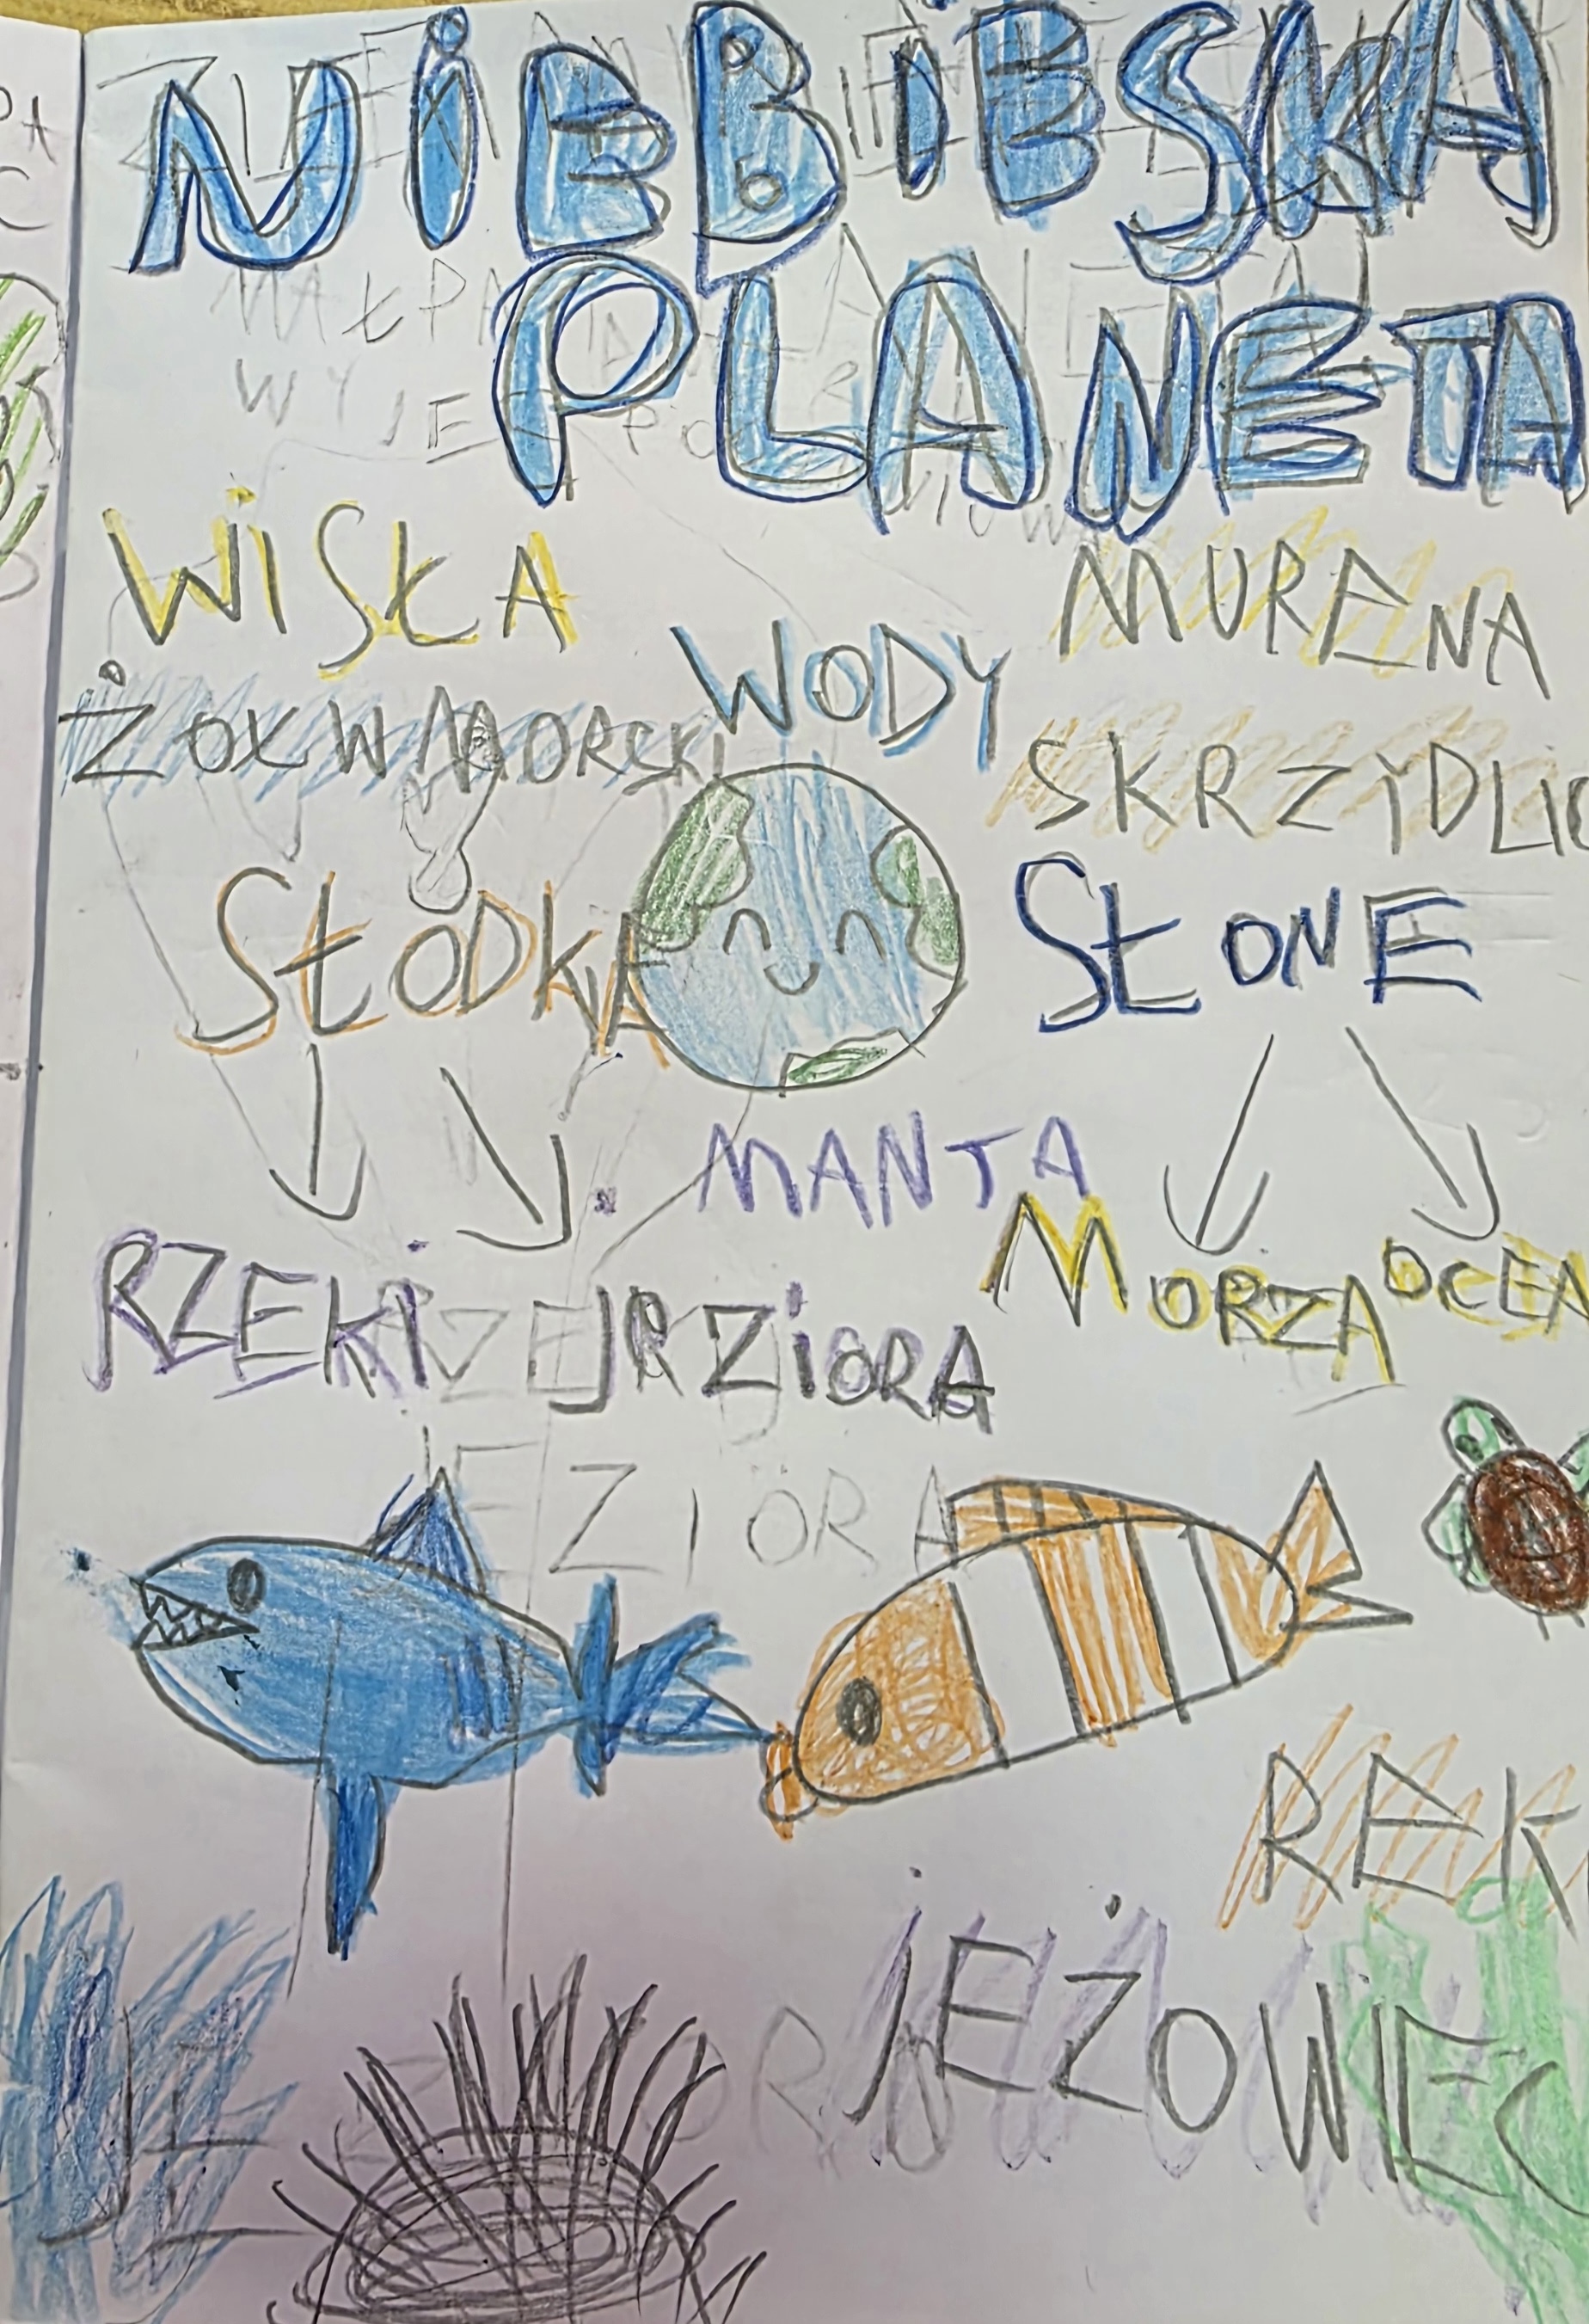 NiEBiESKA
PLANETA
WiSŁA
MURENA
WODY
ŻOŁW MORSKI
SKRZYDLIC
SŁODKA
SŁONE
MANTA
RZEKI
JEZiORA
MORZA
OCEA
JEZIORA
REK
JEŻOWIEC